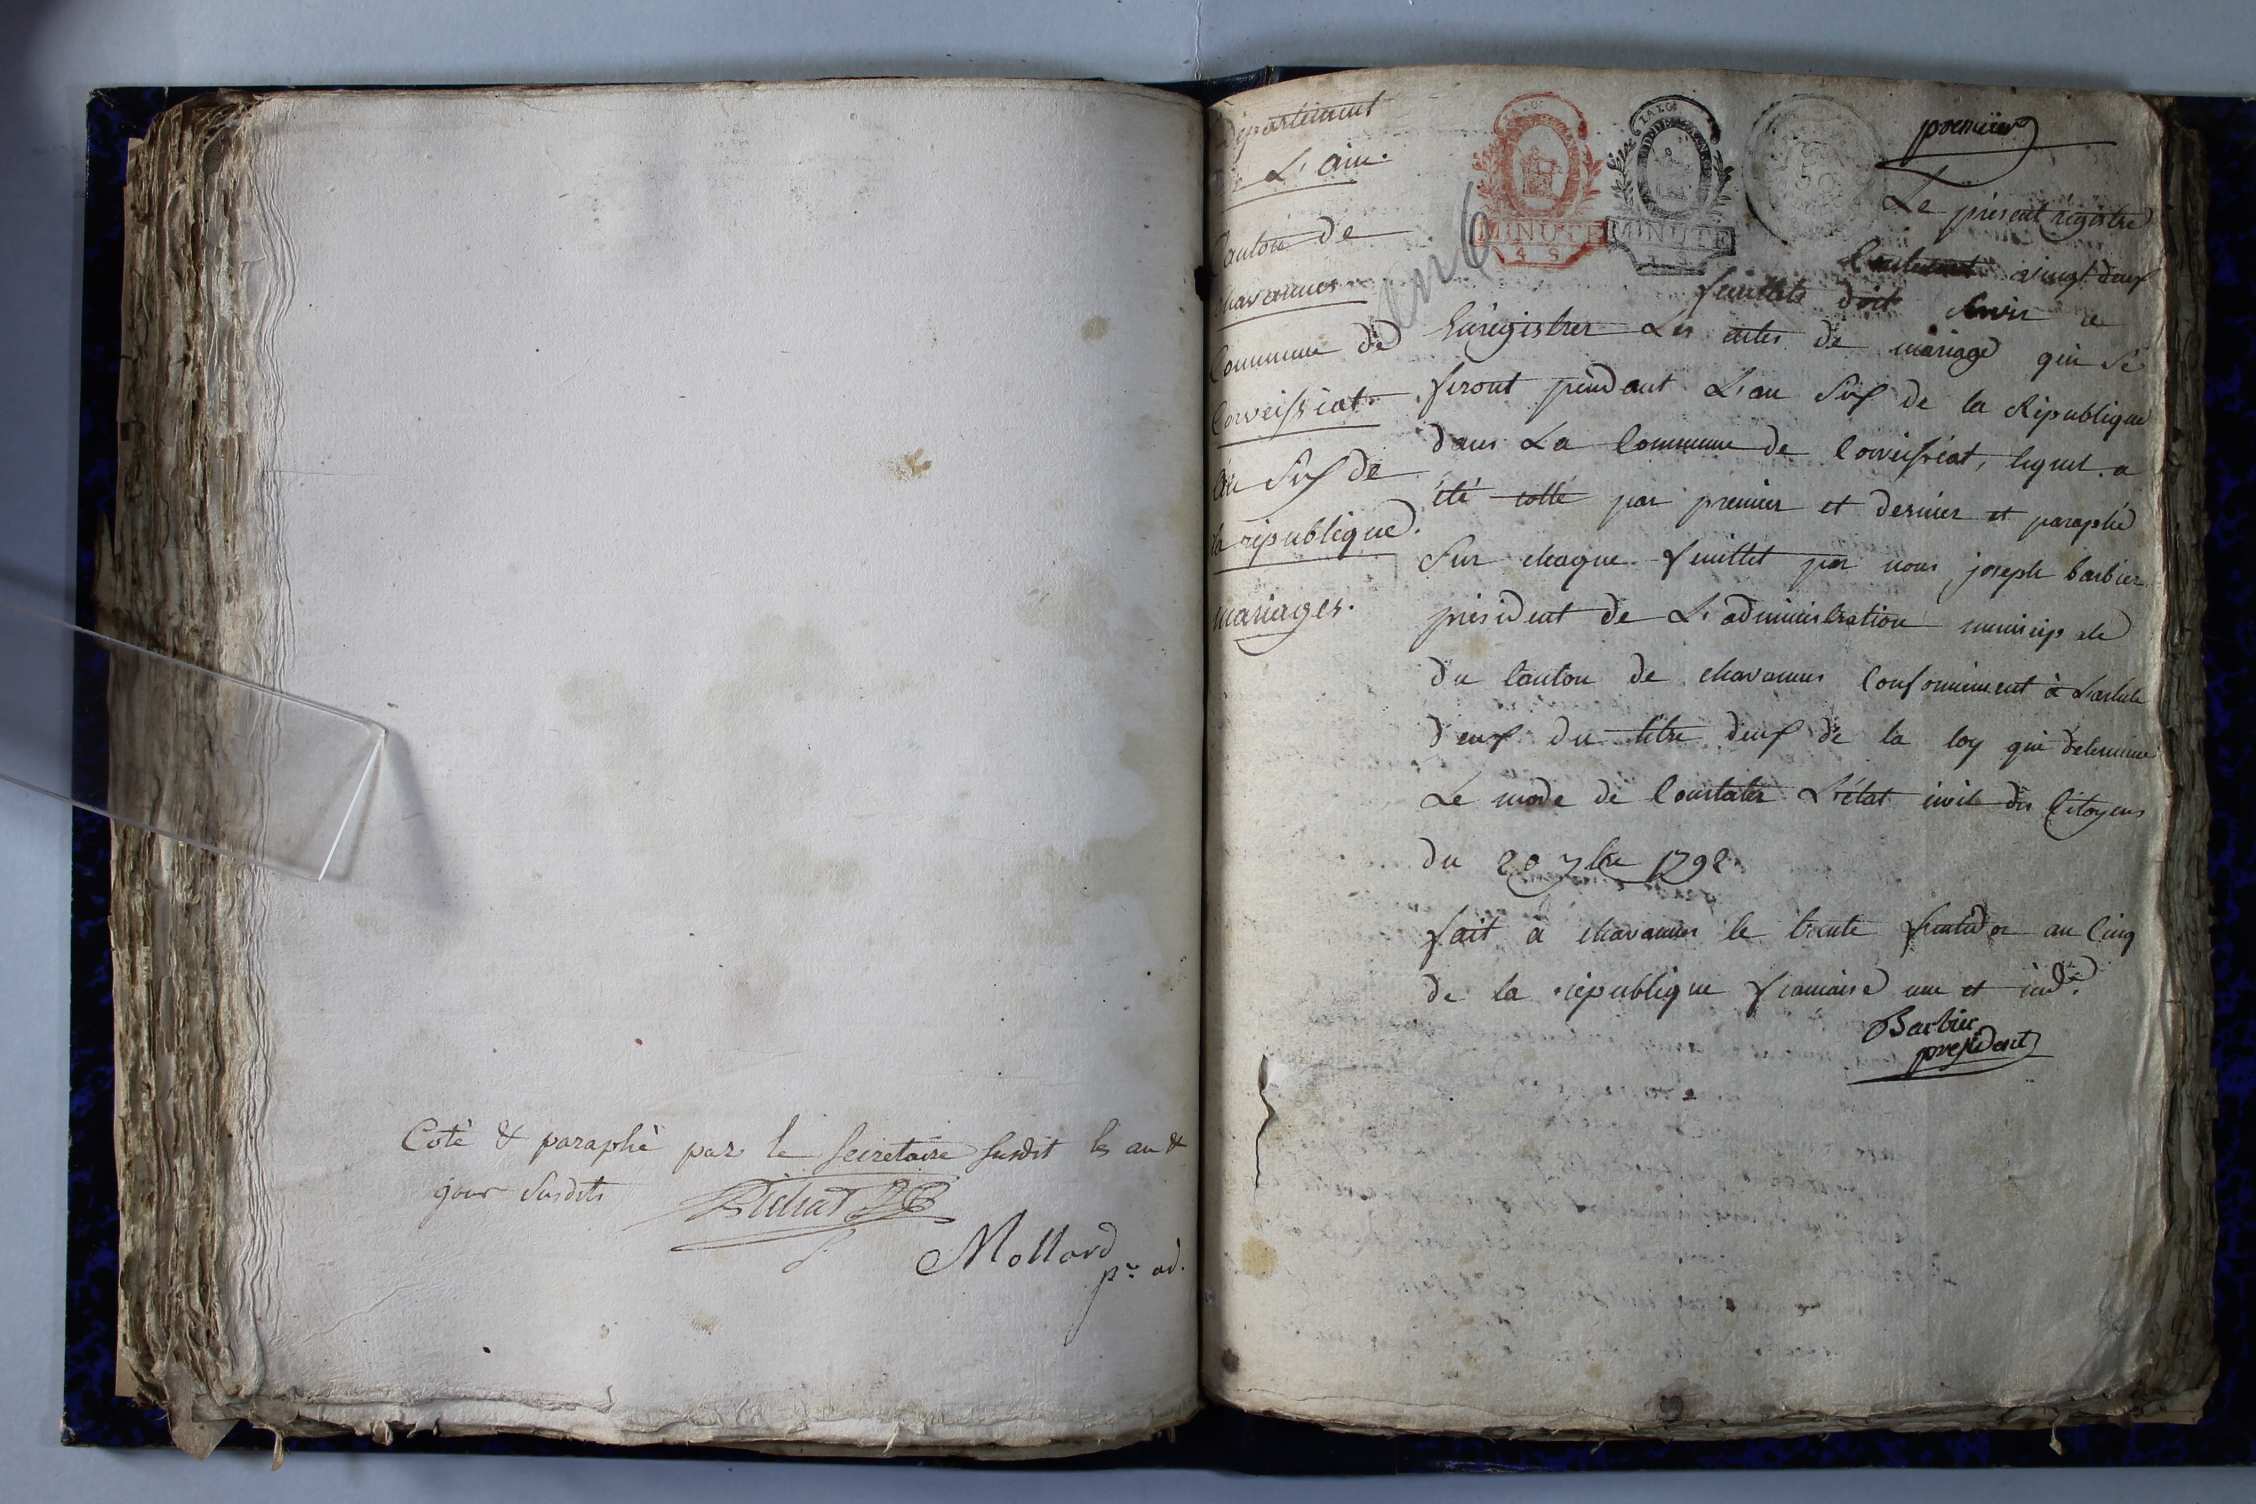 Coté & paraphé par le Secretaire susdit les an &
jour susdits
Mollard
pr. ad.
Departement
L'ain.
Canton de
chavannes
Commune de
Corveissiat
an Six de
la republique
mariages.
an 6
MINUTE
4 S
MINUTE
50
premier
Le present registre
Contenant vingt deux
feuillets doit servir a
Enregistrer Les actes de mariage qui se
feront pendant L'an Six de la Republique
dans La Commune de Corveissiat, lequel a
été cotté par premier et dernier et paraphé
Sur chaque feuillet par nous joseph barbier
president de L'administration municipale
du Canton de chavannes Conformement à L'article
deux du titre deux de la loy qui determine
Le mode de Constater L'état civil des Citoyens
du 20 7bre 1792
fait a chavannes le trente fructidor an Cinq
de la republique francaise une et inde.
Barbier
president